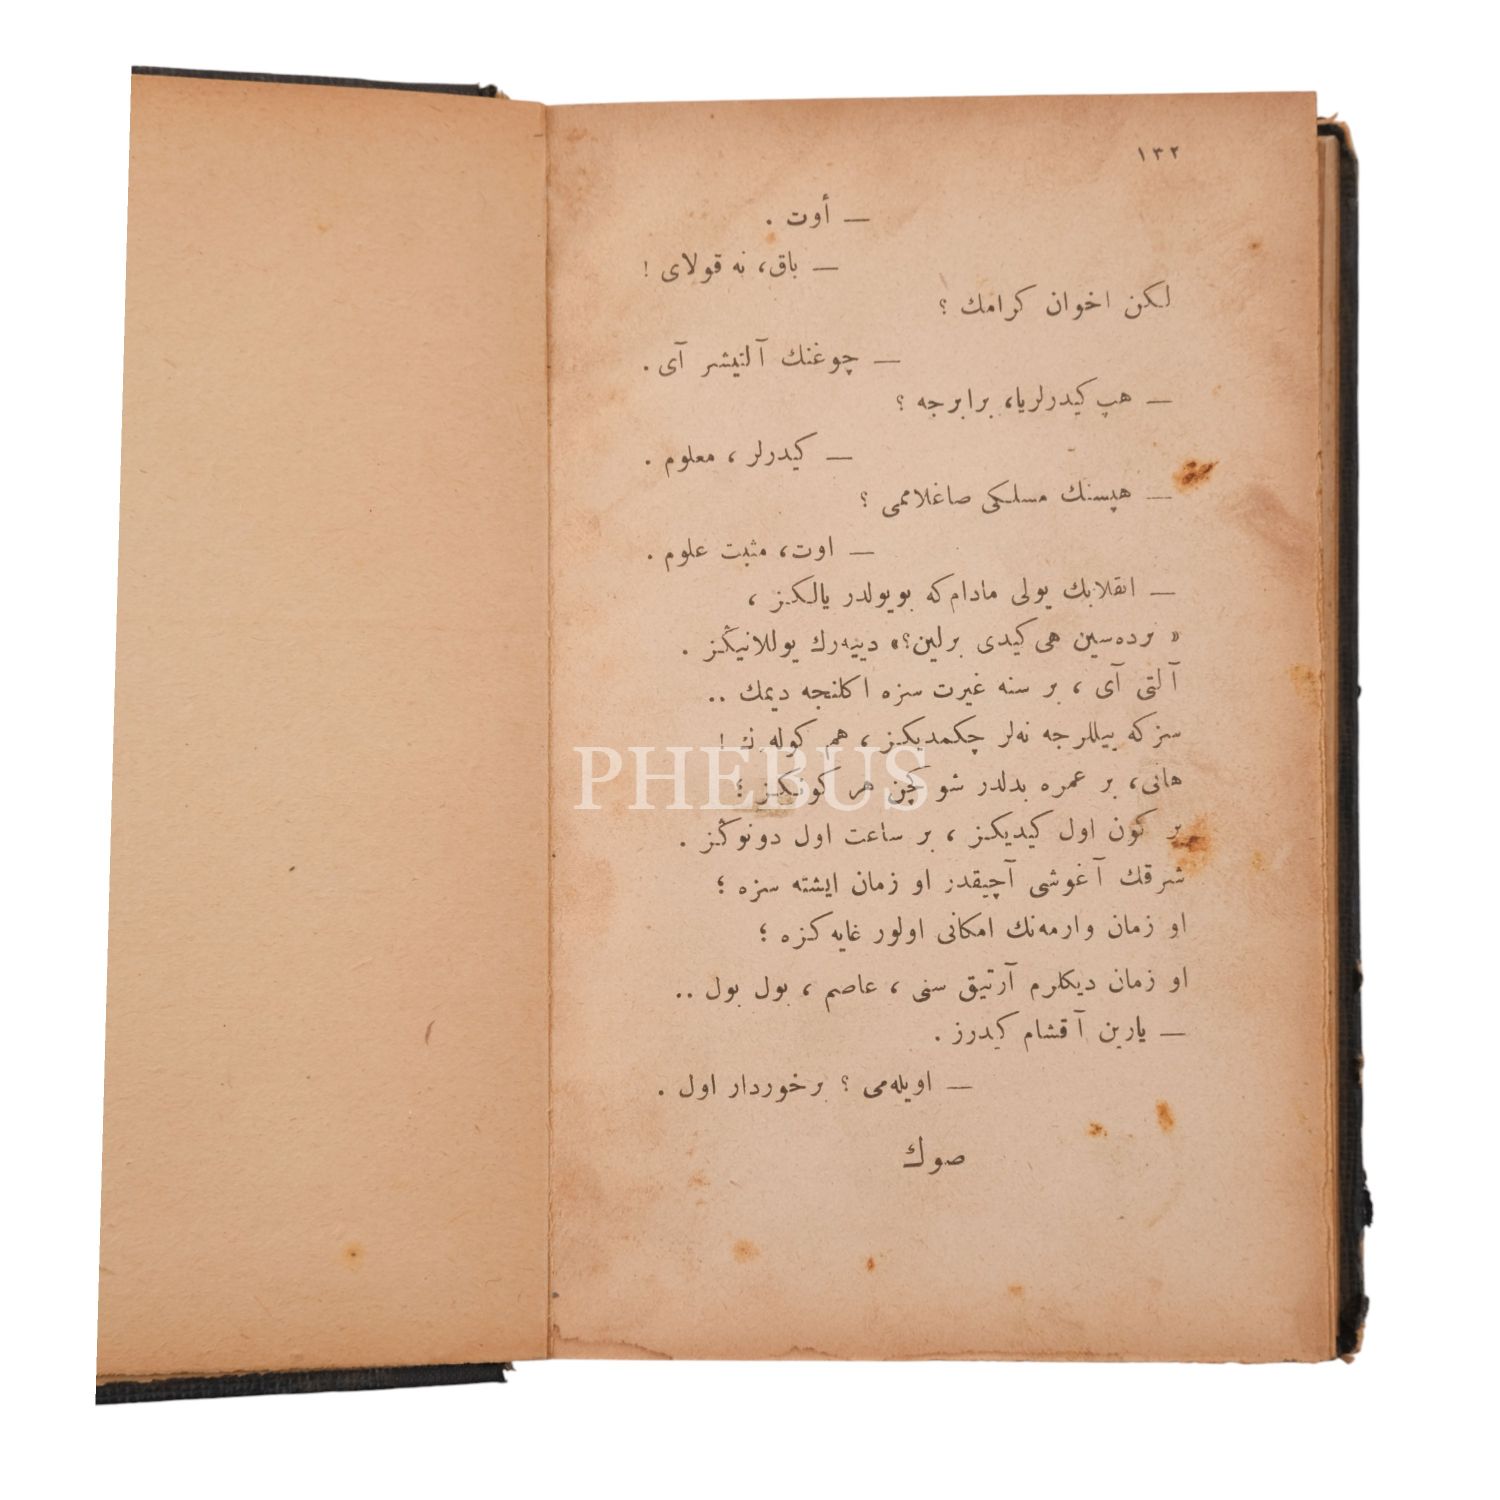 ١٣٢
— أوت .
— باق، نه قولای !
لكن اخوان كرامك ؟
— چوغنك آلتیشر آی .
— هپ كیدرلریا، برابرجه ؟
— كیدرلر ، معلوم .
— هپسنك مسلكی صاغلاممی ؟
— اوت، مثبت علوم .
— انقلابك یولی مادام كه بویولدر یالكز ،
« نرده‌سین هی كیدی برلین؟» دییه‌رك یوللانیڭز .
آلتی آی ، بر سنه غیرت سزه اكلنجه دیمك ..
سز كه ییللرجه نه‌لر چكمدیكز ، هم كوله‌نك !
هانی، بر عمره بدلدر شو كچن هر كونكز ؛
بر كون اول كیدیكز ، بر ساعت اول دونوڭز .
شرقك آغوشی آچیقدر او زمان ایشته سزه ؛
او زمان وارمه‌نك امكانی اولور غایه كزه ؛
او زمان دیكلرم آرتیق سنی ، عاصم ، بول بول ..
— یارین آقشام كیدرز .
— اویله‌می ؟ برخوردار اول .
صوڭ
PHEBUS